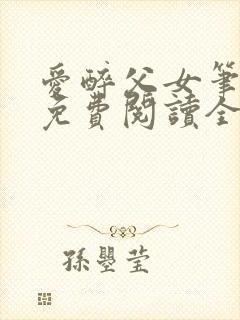 愛醉父女筆
免費閱讀全
孫曌莹